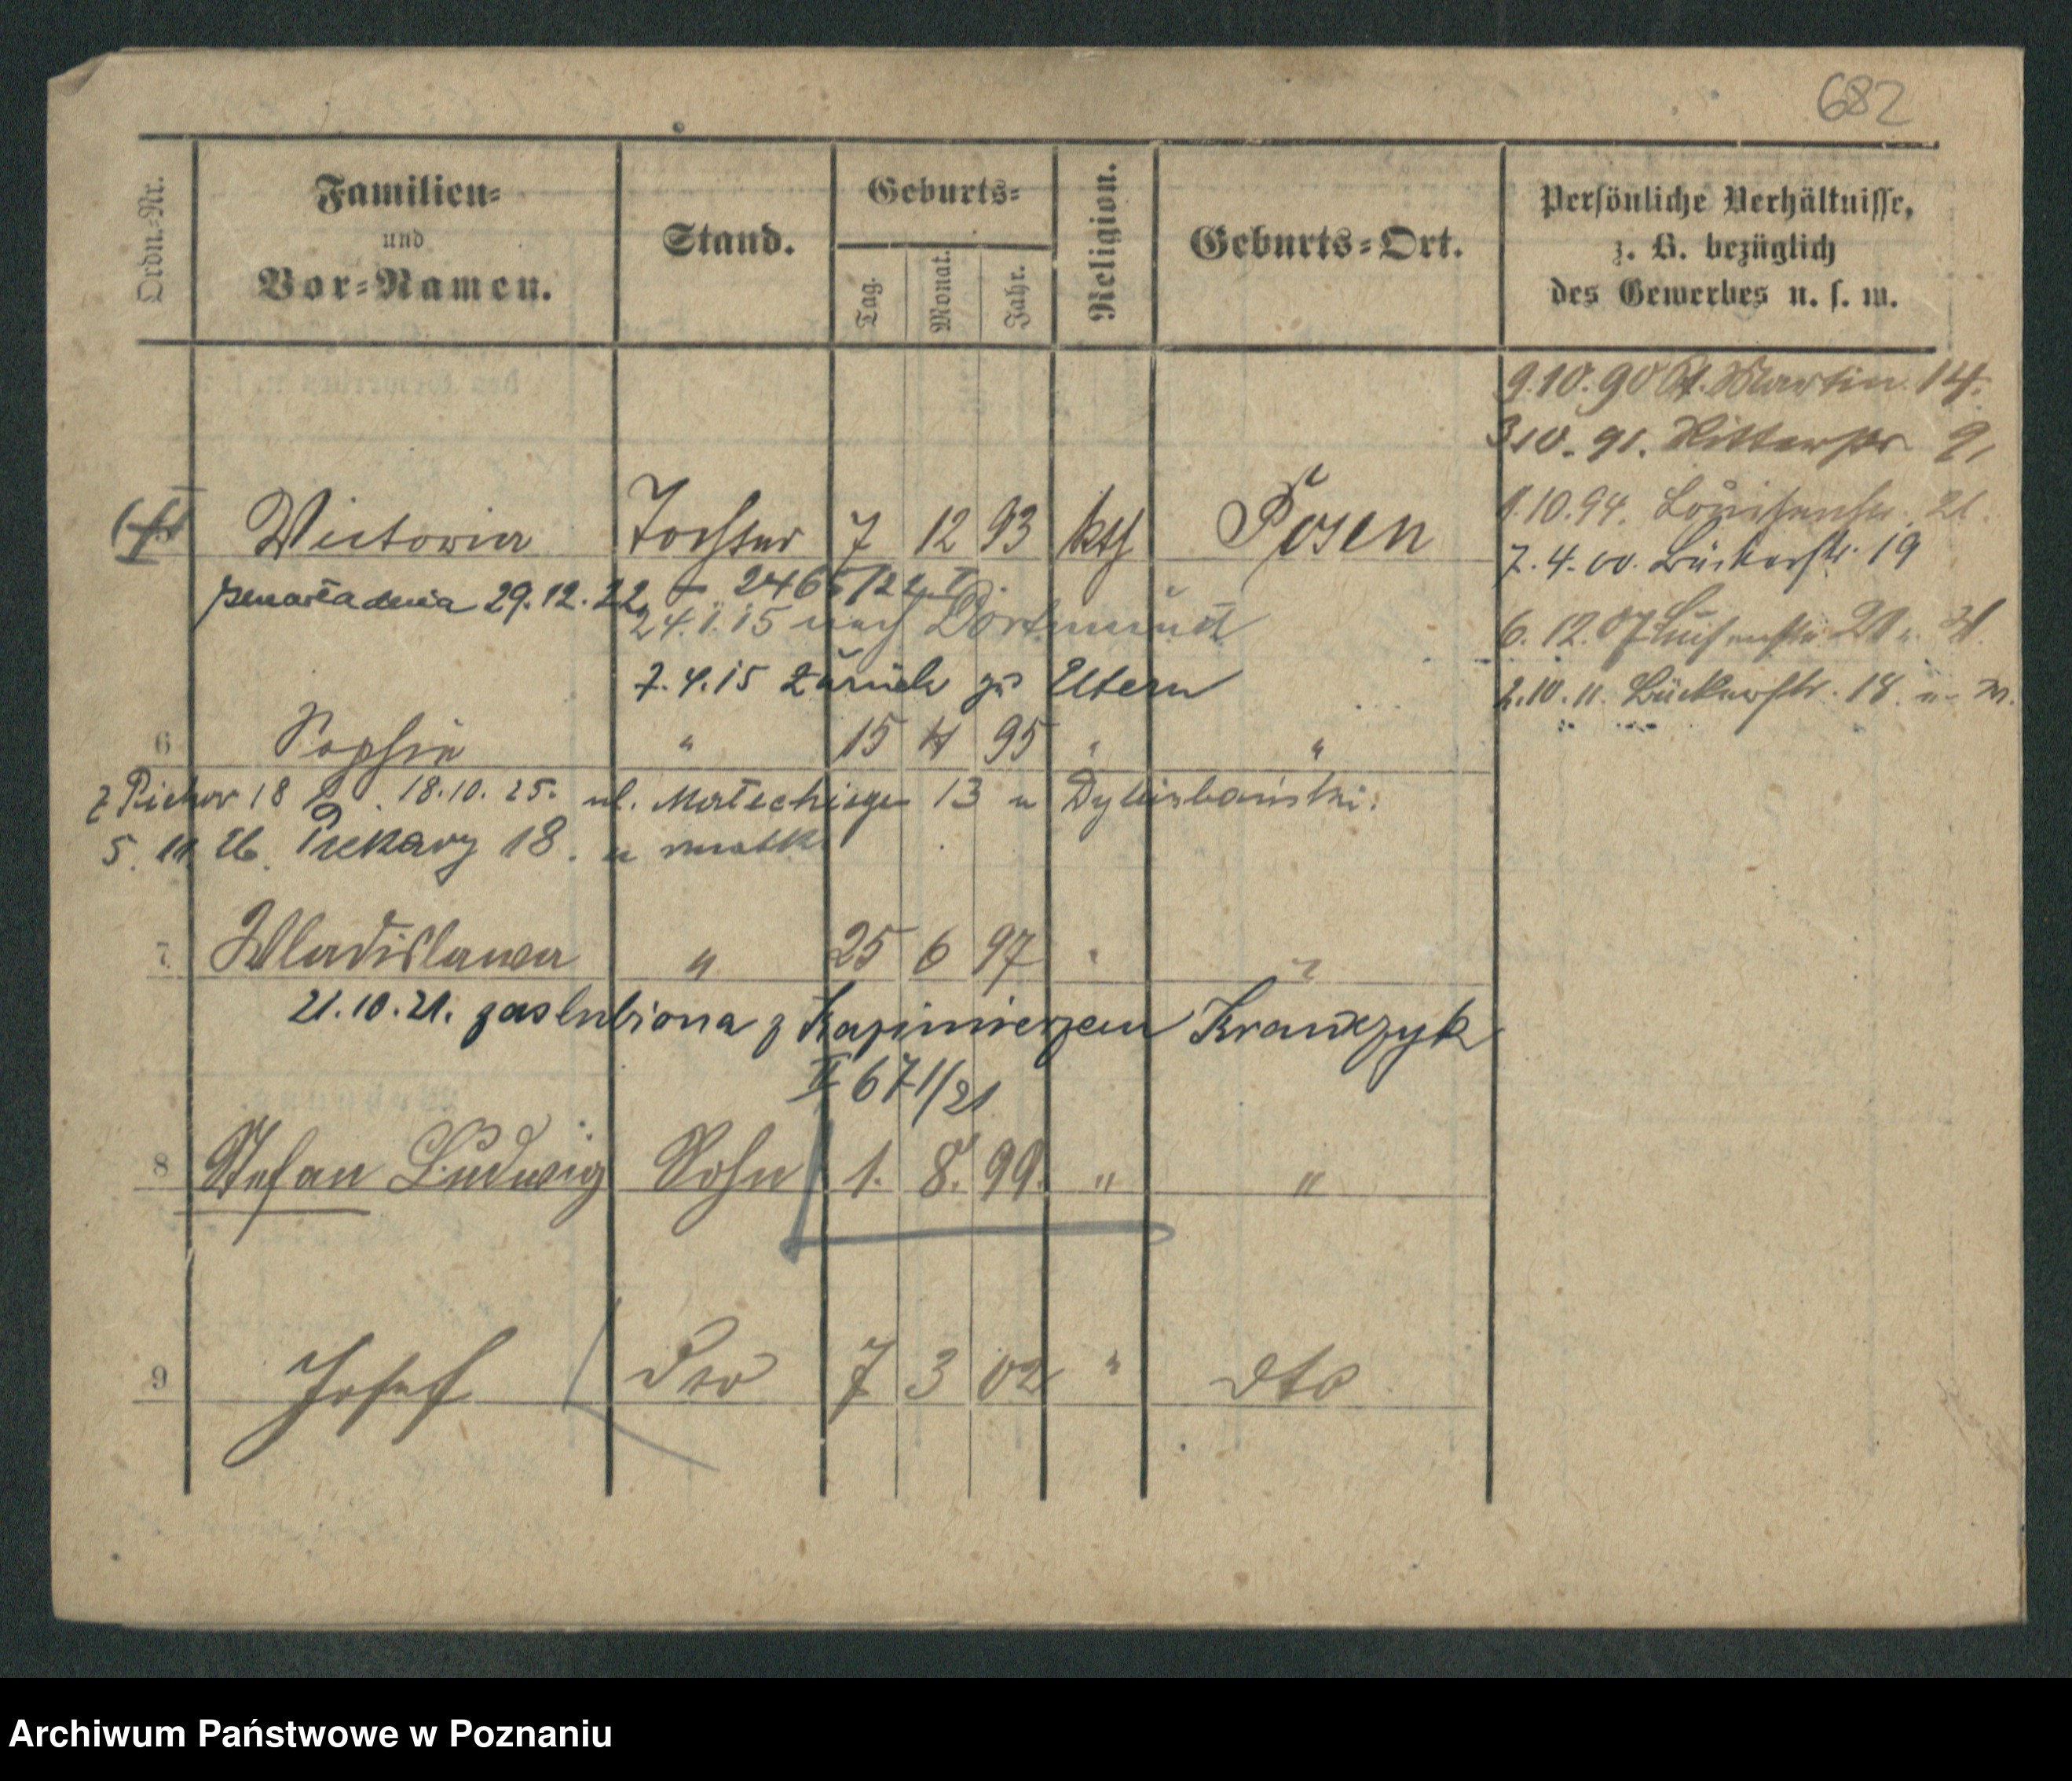 682
Ordn.-Nr.
Familien-
und
Vor-Namen.
Stand.
Geburts-
Tag.
Monat.
Jahr.
Religion.
Geburts-Ort.
Persönliche Verhältnisse,
z. B. bezüglich
des Gewerbes u. s. w.
9.10.90 St. Martin 14.
3.10.91. Ritterstr. 9,
1.10.94. Louisenstr. 21.
7.4.00. Bäckerstr. 19
6.12.07 Luisenstr. 20
2.10.11. Bäckerstr. 18
Victoria Tochter 7 12 93 kth Posen
zmarła dnia 29.12.22
24.1.15 nach Dortmund
7.4.15 zurück zu Eltern
6 Sophie " 15 4 95 " "
18 18.10.25. ul. 13 u
5. 11 26. Piekary 18. u matki
7 Wladislawa " 25 6 97 " "
21.10.21. zaslubiona z Kazimierzem Krawczyk
II 671/21
8 Stefan Ludwig Sohn 1. 8. 99. " "
9 Josef dto 7 3 02 " dto
Archiwum Państwowe w Poznaniu